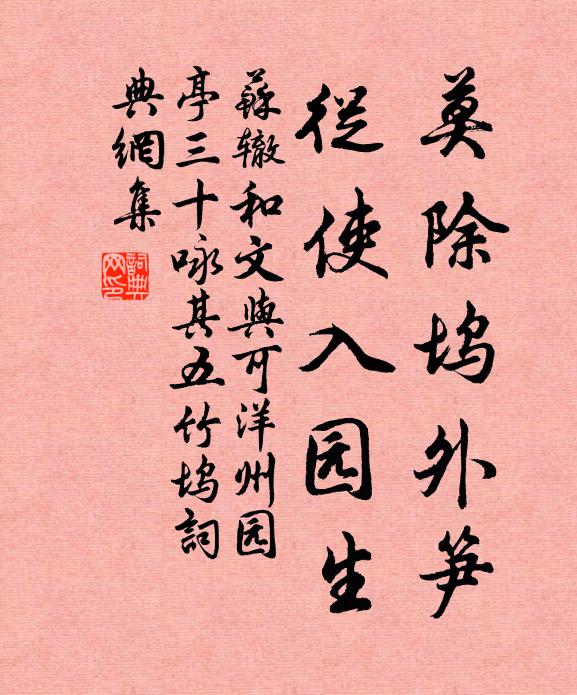 莫除坞外笋
從使入园生
蘇辙和文與可洋州园
亭三十咏其五竹坞詞
典網集
詞典网印